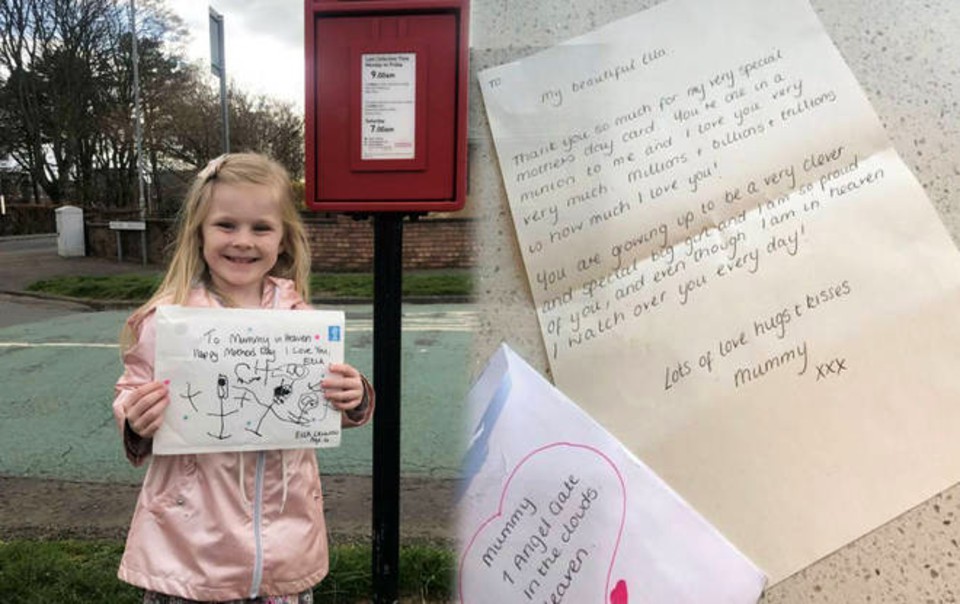 Last Collection Time
Monday to Friday
9.00am
Saturday
7.00am
To Mummy in Heaven
Happy Mothers Day I Love You,
ELLA
Age 4
To
My beautiful Ella.
Thank you so much for my very special
mothers day card. You're one in a
million to me and I love you very
very much. Millions + billions + trillions
is how much I love you!
You are growing up to be a very clever
and special big girl and I am so proud
of you, and even though I am in heaven
I watch over you every day!
Lots of love hugs + kisses
Mummy
xxx
Mummy
1 Angel Gate
In the clouds.
Heaven.